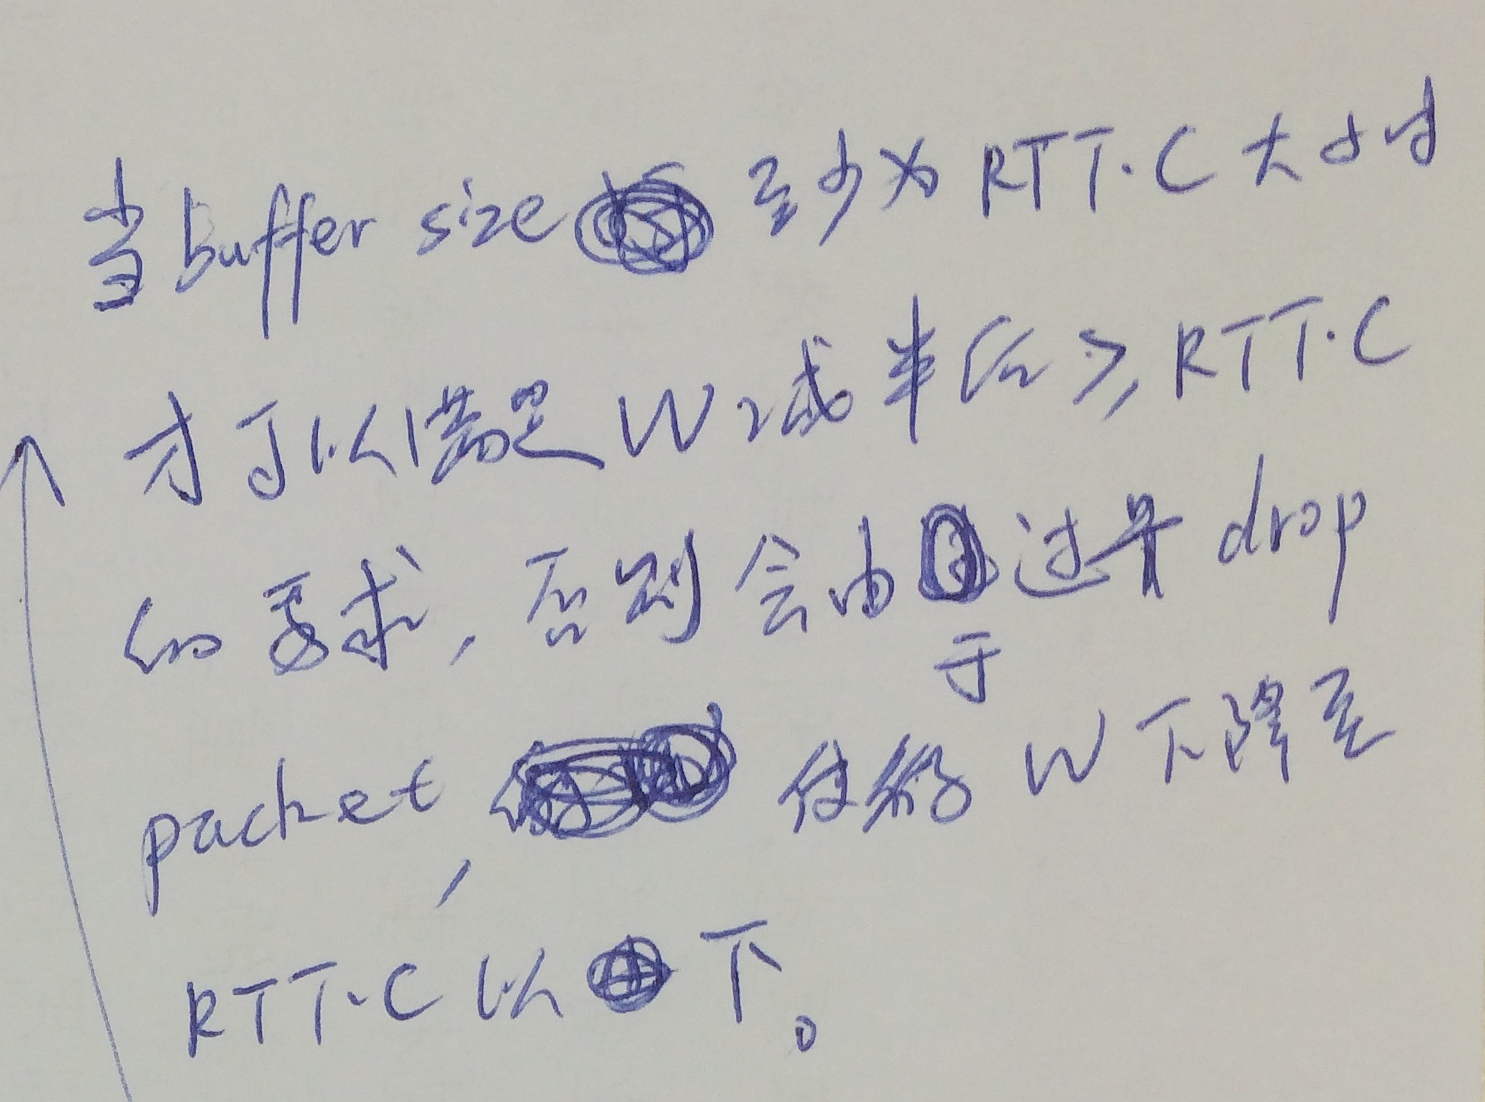 当buffer size 至少为RTT·C大小时
才可以满足W减半后≥RTT·C
的要求,否则会由于过早drop
packet,使得W下降至
RTT·C以下。